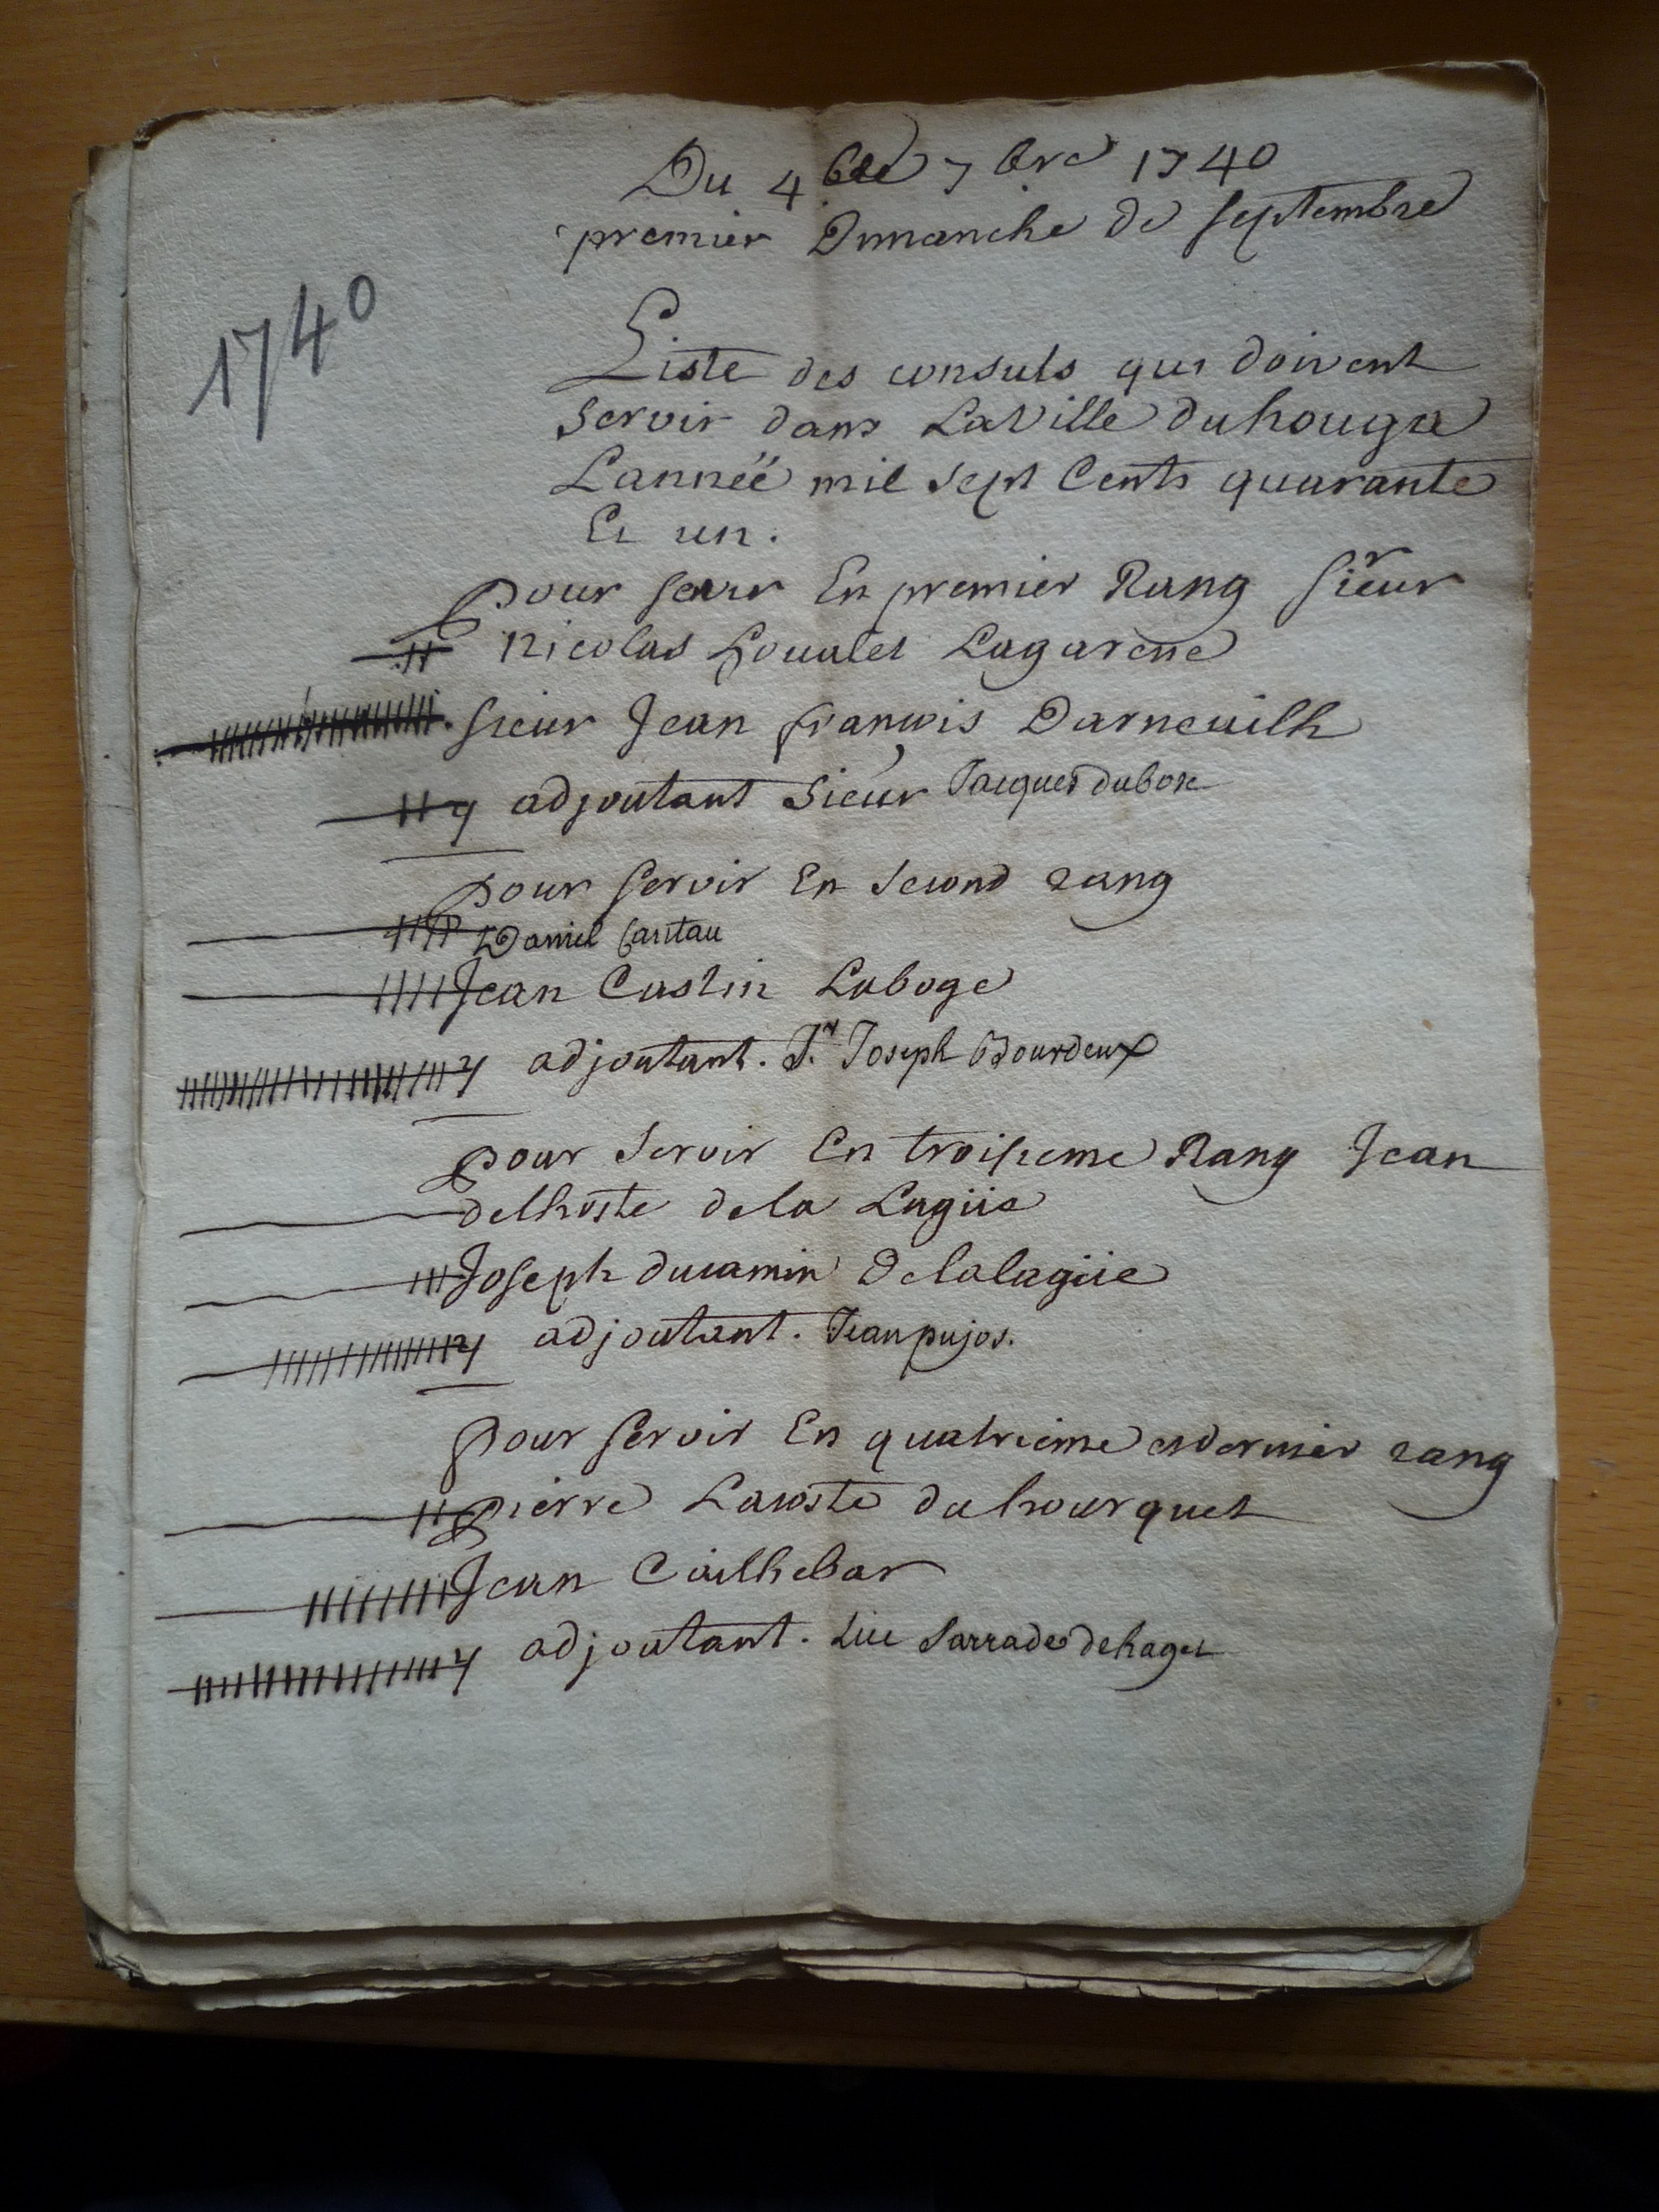 Du 4 7bre 1740
premier Dimanche de septembre
1740
Liste des consuls qui doivent
servir dans La Ville duhouga
Lannéé mil sept Cents quarante
Et un.
pour servir En premier Rang sieur
Nicolas Lagarene
sieur Jean francois Darneuilh
adjoutant sieur Jacques dubosc
pour servir En second rang
Daniel Cantau
Jean Castin Laboge
adjoutant. Jn Joseph Bourdeux
pour servir En troisieme Rang Jean
delhoste dela Lagüe
Joseph ducamin Delalagüe
adjoutant. Jean pujos.
pour servir En quatrieme et dernier rang
pierre Lacoste duhourquet
Jean Cailhebar
adjoutant. Luc Sarrade dehaget